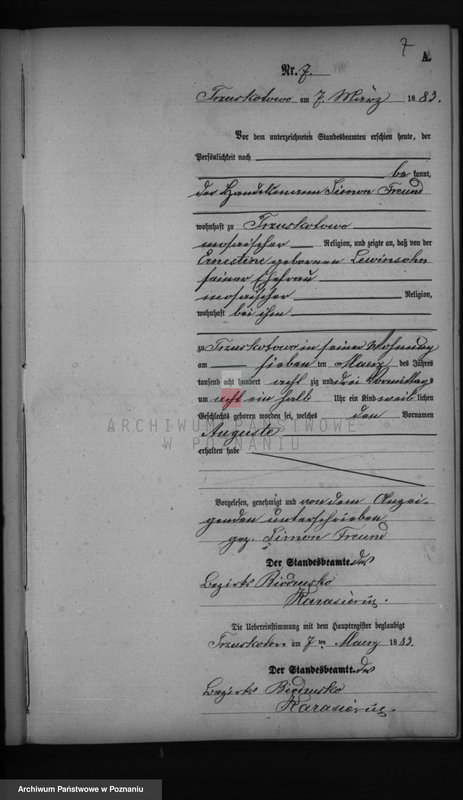 7
A.
Nr. 7.
Trzuskotowo am 7. März 1883.
Vor dem unterzeichneten Standesbeamten erschien heute, der
Persönlichkeit nach
be kannt,
der Handelsmann Simon Freund
wohnhaft zu Trzuskotowo
mosaischer Religion, und zeigte an, daß von der
Ernestine geborenen Lewinsohn
seiner Ehefrau
mosaischer Religion,
wohnhaft bei ihm
zu Trzuskotowo in seiner Wohnung
am sieben ten Maerz des Jahres
tausend acht hundert acht zig und drei Vormittags
um acht ein halb Uhr ein Kind weib lichen
Geschlechts geboren worden sei, welches den Vornamen
Auguste
erhalten habe
ARCHIWUM PAŃSTWOWE
W POZNANIU
Vorgelesen, genehmigt und von dem Anzei-
genden unterschrieben
gez. Simon Freund
Der Standesbeamte. des
Bezirks Biedrusko
Die Uebereinstimmung mit dem Hauptregister beglaubigt
am 7ten Maerz 1883.
Der Standesbeamte. des
Bezirks Biedrusko
Archiwum Państwowe w Poznaniu